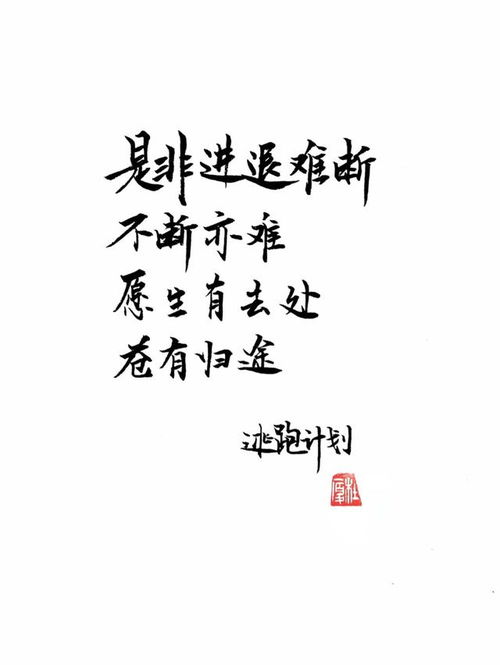 是非进退难断
不断亦难
愿生有去处
卷有归途
逃跑计划